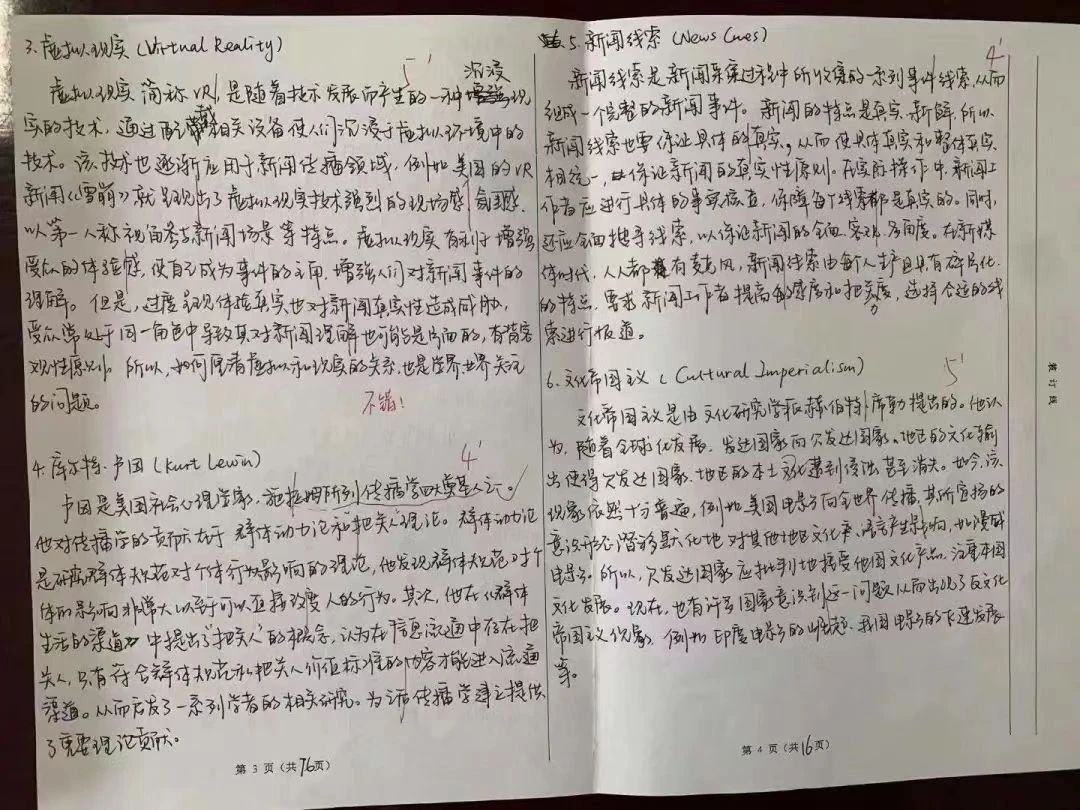 3. 虚拟现实 (Virtual Reality)
5'
沉浸
虚拟现实简称VR,是随着技术发展而产生的一种现
实的技术,通过配戴相关设备使人们沉浸于虚拟环境中的
技术。该技术也逐渐应用于新闻传播领域,例如美国的VR
新闻《雪崩》就呈现出了虚拟现实技术强烈的现场感、氛围感,
以第一人称视角参与新闻场景等特点。虚拟现实有利于增强
受众的体验感,使自己成为事件的主角,增强人们对新闻事件的
理解。但是,过度呈现体验真实也对新闻真实性造成威胁,
受众常处于同一角色中导致其对新闻理解也可能是片面的,有背客
观性原则。所以,如何厘清虚拟和现实的关系,也是学界业界关注
的问题。
不错!
4. 库尔特·卢因 (Kurt Lewin)
4'
卢因是美国社会心理学家,施拉姆所列传播学四大奠基人之一。
他对传播学的贡献在于群体动力论和"把关人"理论。群体动力论
是研究群体规范对个体行为影响的理论,他发现群体规范对个
体的影响非常大以至于可以直接改变人的行为。其次,他在《群体
生活的渠道》中提出了"把关人"的概念,认为在信息流通中存在把
关人,只有符合群体规范和把关人价值标准的内容才能进入流通
渠道。从而启发了一系列学者的相关研究。为传播学建立提供
了重要理论贡献。
第 3 页(共16页)
5. 新闻线索 (News Cues)
4'
新闻线索是新闻采集过程中所收集的一系列事件线索,从而
组成一个完整的新闻事件。新闻的特点是真实、新鲜,所以
新闻线索也要保证具体的真实,从而使具体真实和整体真实
相统一,保证新闻的真实性原则。在实际操作中,新闻工
作者应进行具体的事实核查,保障每个线索都是真实的。同时,
还应全面搜寻线索,以保证新闻的全面、客观、多角度。在新媒
体时代,人人都有麦克风,新闻线索由每个人生产且具有碎片化
的特点,要求新闻工作者提高敏感度和把关度,选择合适的线
索进行报道。
6. 文化帝国主义 (Cultural Imperialism)
5'
文化帝国主义是由文化研究学派赫伯特·席勒提出的。他认
为,随着全球化发展,发达国家向欠发达国家、地区的文化输
出使得欠发达国家、地区的本土文化遭到侵蚀甚至消失。如今,该
现象依然十分普遍,例如美国电影向全世界传播,其所宣扬的
意识形态潜移默化地对其他地区文化、语言产生影响,如漫威
电影。所以,欠发达国家应批判地接受他国文化产品,注重本国
文化发展。现在,也有许多国家意识到这一问题从而出现了反文化
帝国主义现象,例如印度电影的崛起、我国电影的飞速发展
等。
第 4 页(共16页)
装订线